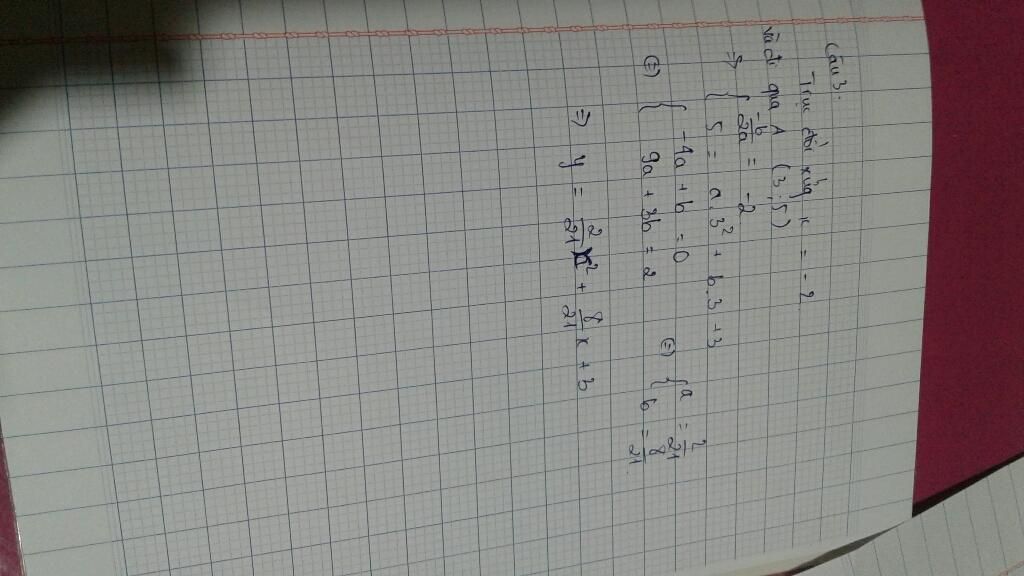 Câu 3.
Trục đối xứng x = -2
và đi qua A (3; 5)
⇒ { -b/2a = -2
5 = a.3² + b.3 + 3
⇔ { -4a + b = 0
9a + 3b = 2
⇔ { a = 2/21
b = 8/21
⇒ y = 2/21 x² + 8/21 x + 3